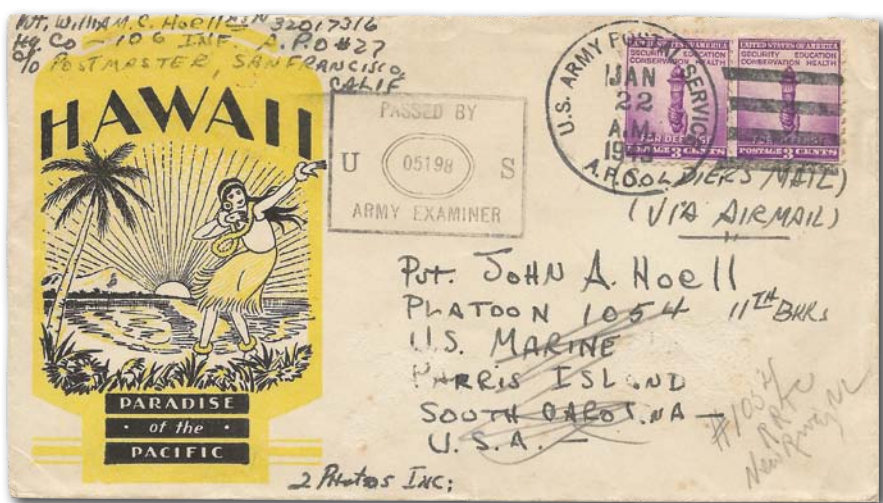 Pvt. William C. Hoell ASN 32017316
Hq. Co – 106 INF. A.P.O #27
c/o POSTMASTER, SAN FRANCISCO,
CALIF
HAWAII
PARADISE
· of the ·
PACIFIC
PASSED BY
U 05198 S
ARMY EXAMINER
U.S. ARMY POSTAL SERVICE
JAN
22
A.M.
A.P.O.
UNITED STATES OF AMERICA
SECURITY EDUCATION
CONSERVATION HEALTH
FOR DEFENSE
POSTAGE 3 CENTS
UNITED STATES OF AMERICA
SECURITY EDUCATION
CONSERVATION HEALTH
FOR DEFENSE
POSTAGE 3 CENTS
SOLDIERS MAIL)
(VIA AIRMAIL)
Pvt. JOHN A. Hoell
PLATOON 1054 11TH BKRS
U.S. MARINE
PARRIS ISLAND
SOUTH CAROLINA –
U.S.A. –
#1054
RRTC
New River, NC
2 Photos INC;